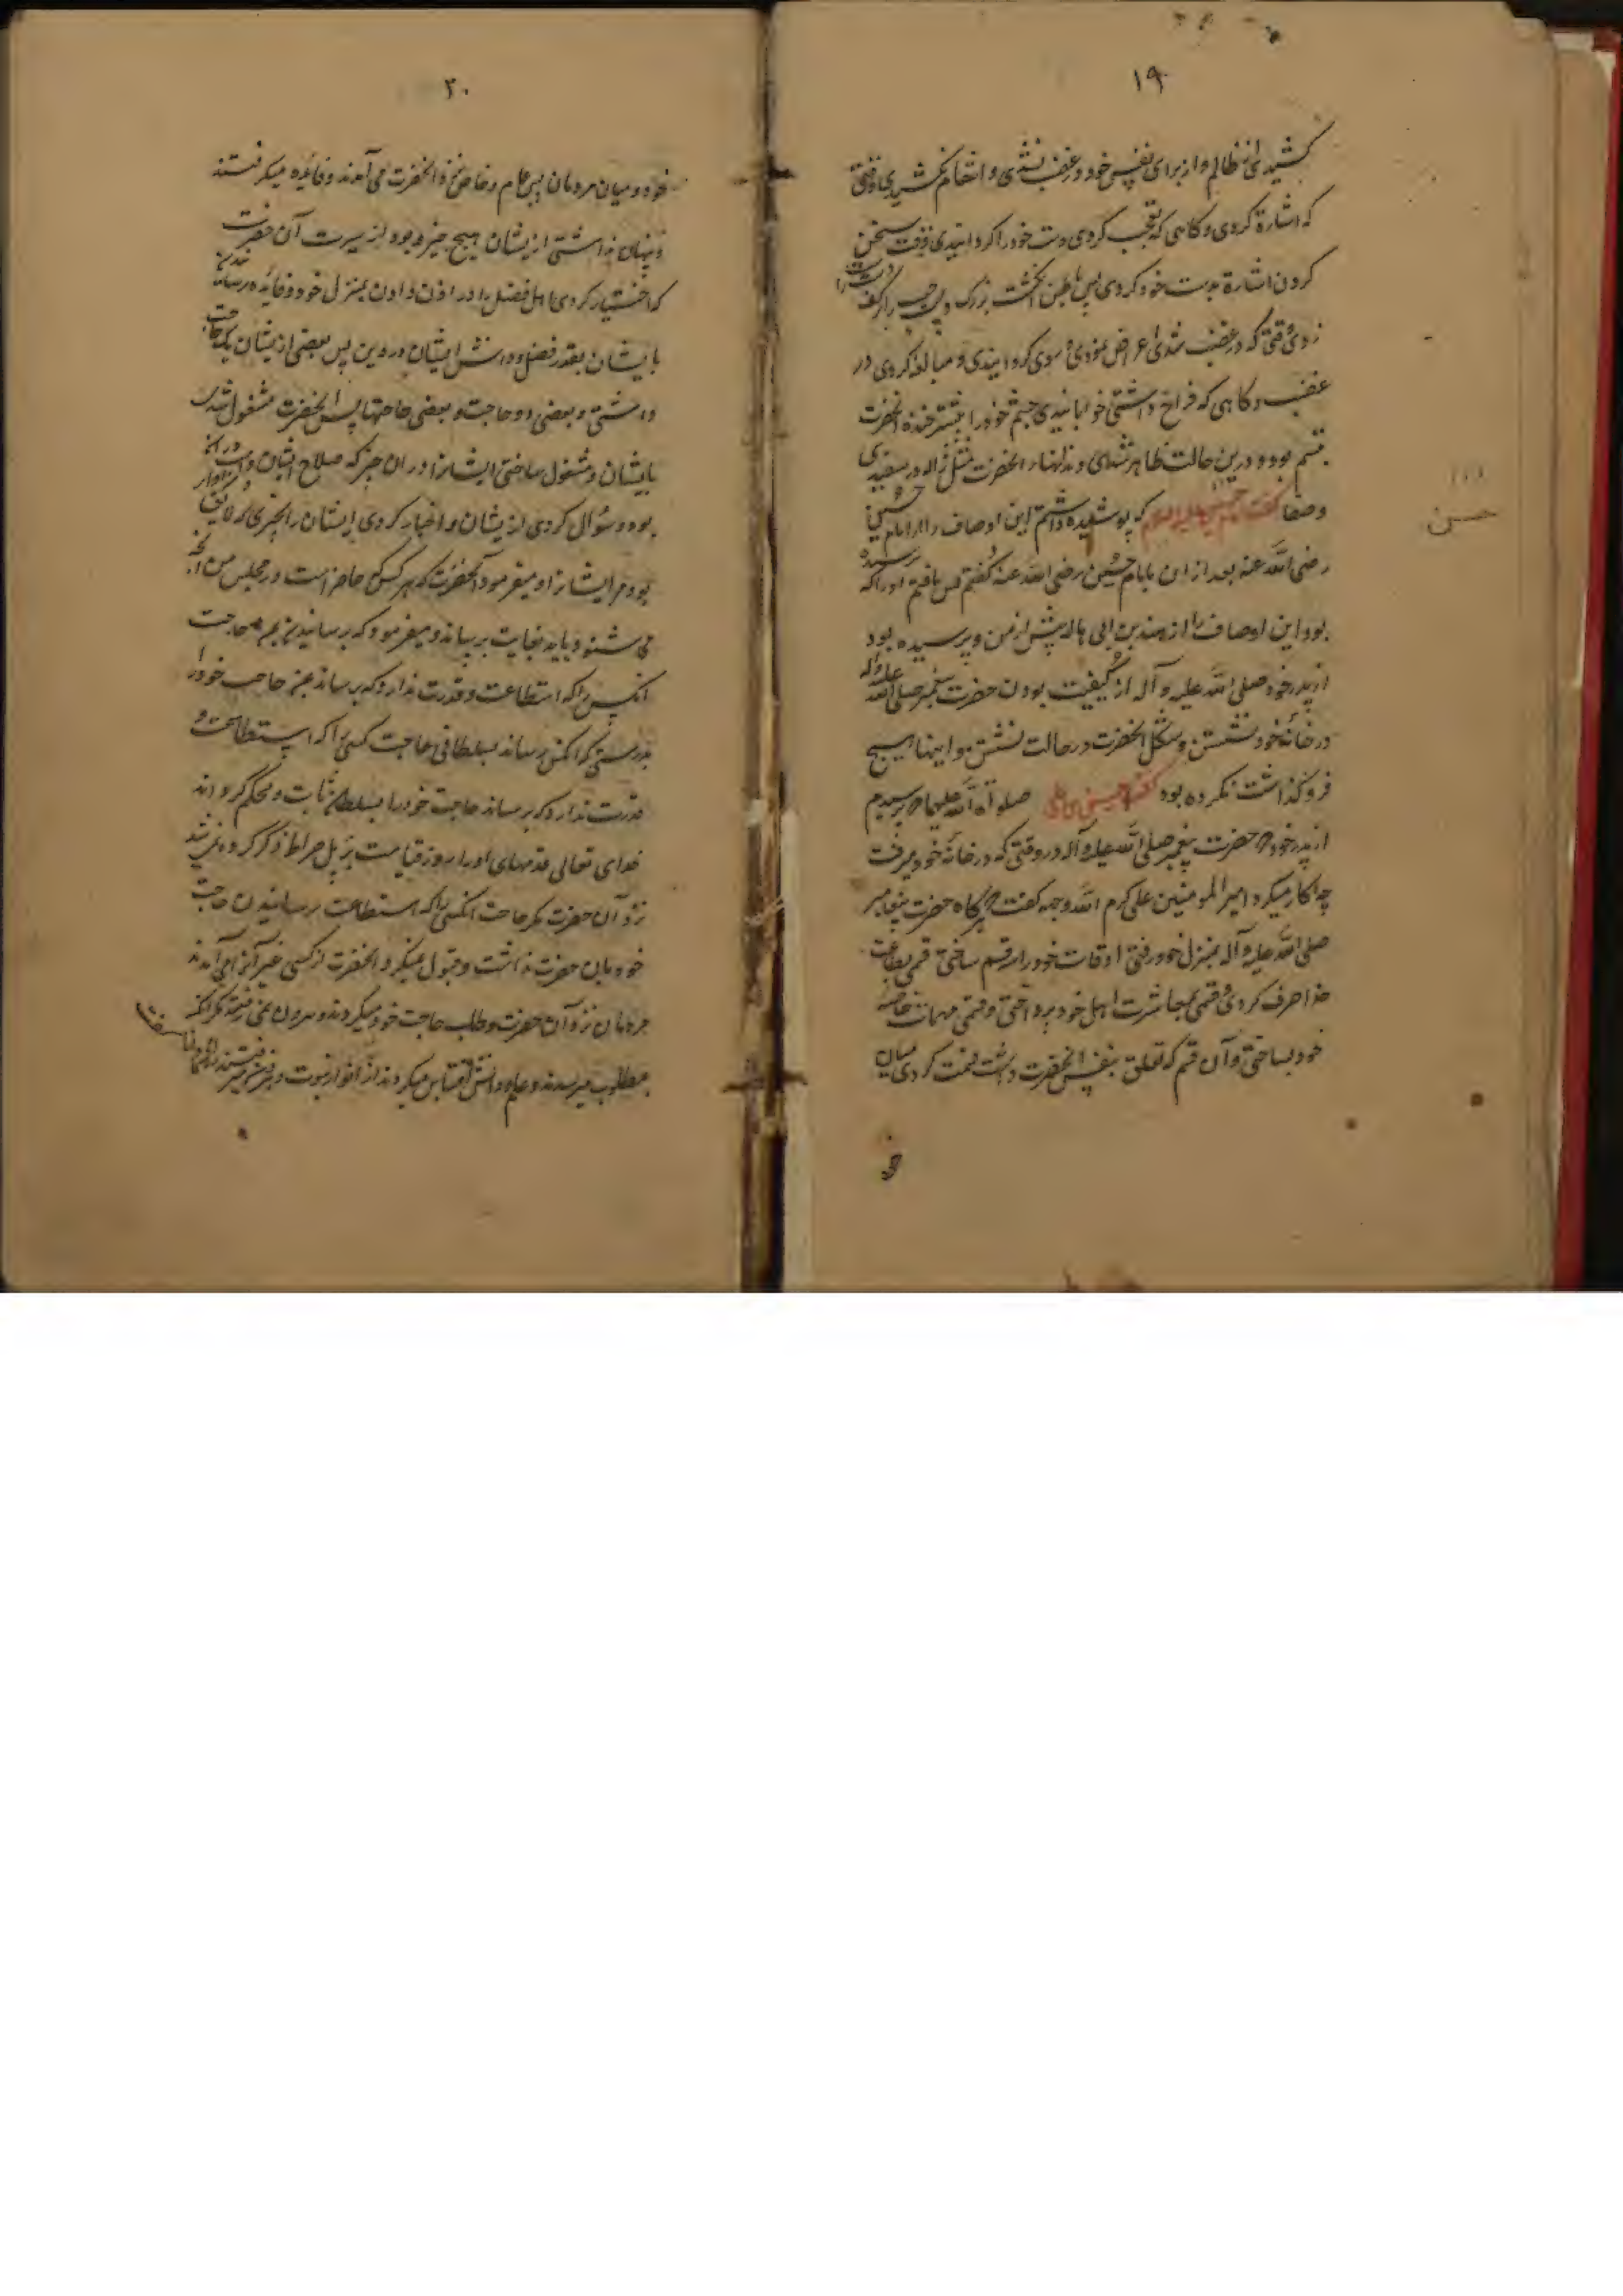 ۱۹
کشیدی از ظالم و از برای نفس خود در غضب نشدی و انتقام نکشیدی وقتی
که اشارة کردی و کاهی که تعجب کردی دست خود را کردانیدی وقت سخن
کردن اشارة بدست خود کردی پس باطن انکشت بزرک چپ را بر کف
دست راست
زدی وقتی که در غضب شدی اعراض نمودی و روی کردانیدی و مبالغه کردی در
غضب و کاهی که فراخ داشتی خوابانیدی چشم خود را بیشتر خنده آنحضرت
تبسم بود و درین حالت ظاهر شدی دندانهاء آنحضرت مثل ژاله در سفیدی
و صفا کفت امام حسن علیه السلام که پوشیده داشتم این اوصاف را از امام حسین
حسن
رضی الله عنه بعد از ان بامام حسین رضی الله عنه کفتم پس یافتم او را که
پرسیده
بود این اوصاف را از هند بن ابی هاله پیش از من و پرسیده بود
از پدر خود صلی الله علیه و آله از کیفیت بودن حضرت پیغمبر صلی الله
علیه و آله
در خانه خود نشستن و شکل آنحضرت در حالت نشستن و اینها هیچ
فرو کذاشت نکرده بود کفت حسین بن علی صلوة الله علیهما پرسیدم
از پدر خود حضرت پیغمبر صلی الله علیه و آله در وقتی که در خانه خود میرفت
چه کار میکرد امیر المومنین علی کرم الله وجهه کفت هر کاه حضرت پیغامبر
صلی الله علیه و آله بمنزل خود رفتی اوقات خود را سه قسم ساختی قسمی بطاعت
خدا صرف کردی و قسمی بمعاشرت اهل خود پرداختی و قسمی مهمات خاصه
خود بساختی و آن قسم که تعلق بنفس آنحضرت داشت قسمت کردی میان
خو
۲۰
خود و میان مردمان پس عام و خاص نزد آنحضرت می آمدند و فائده میکرفتند
و پنهان نداشتی ازیشان هیچ چیز و بود از سیرت آن حضرت
که اختیار کردی اهل فضل را در اذن دادن بمنزل خود و فائده رسانیدن
بایشان بقدر فضل و دانش ایشان در دین پس بعضی ازیشان یک حاجت
داشتی و بعضی دو حاجت و بعضی حاجتها پس آنحضرت مشغول شدی
بایشان و مشغول ساختی ایشانرا در ان چیز که صلاح ایشان در ان
بود و سؤال کردی ازیشان و اخبار کردی ایشان را بچیزی که لایق
و سزاوار
بود مر ایشانرا و میفرمود آنحضرت که هر کس که حاضر است در مجلس من آنچه
می شنود باید بغایب برساند و میفرمود که برسانید بمن حاجت
آنکس را که استطاعت و قدرت ندارد که برساند بمن حاجت خود را
بدرستی که آنکس برساند بسلطانی حاجت کسی را که استطاعت و
قدرت ندارد که برساند حاجت خود را بسلطان ثابت و محکم کرداند
خدای تعالی قدمهای او را روز قیامت بر پل صراط ذکر کرده نمی شد
نزد آن حضرت مکر حاجت آنکسی را که استطاعت رسانیدن حاجت
خود بان حضرت نداشت و قبول نمیکرد آنحضرت از کسی غیر آنرا می آمدند
مردمان نزد آن حضرت و طلب حاجت خود میکردند و بیرون نمی رفتند مکر آنکه
بمطلوب میرسیدند و علم و دانش اقتباس میکردند از انوار نبوت و